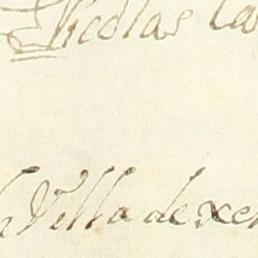 Nicolas la
Villa de xe